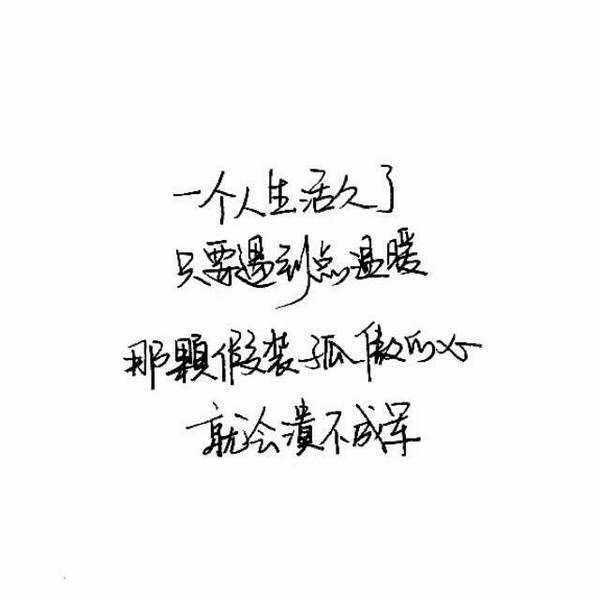 一个人生活久了
只要遇到点温暖
那顆假装孤傲的心
就会潰不成军